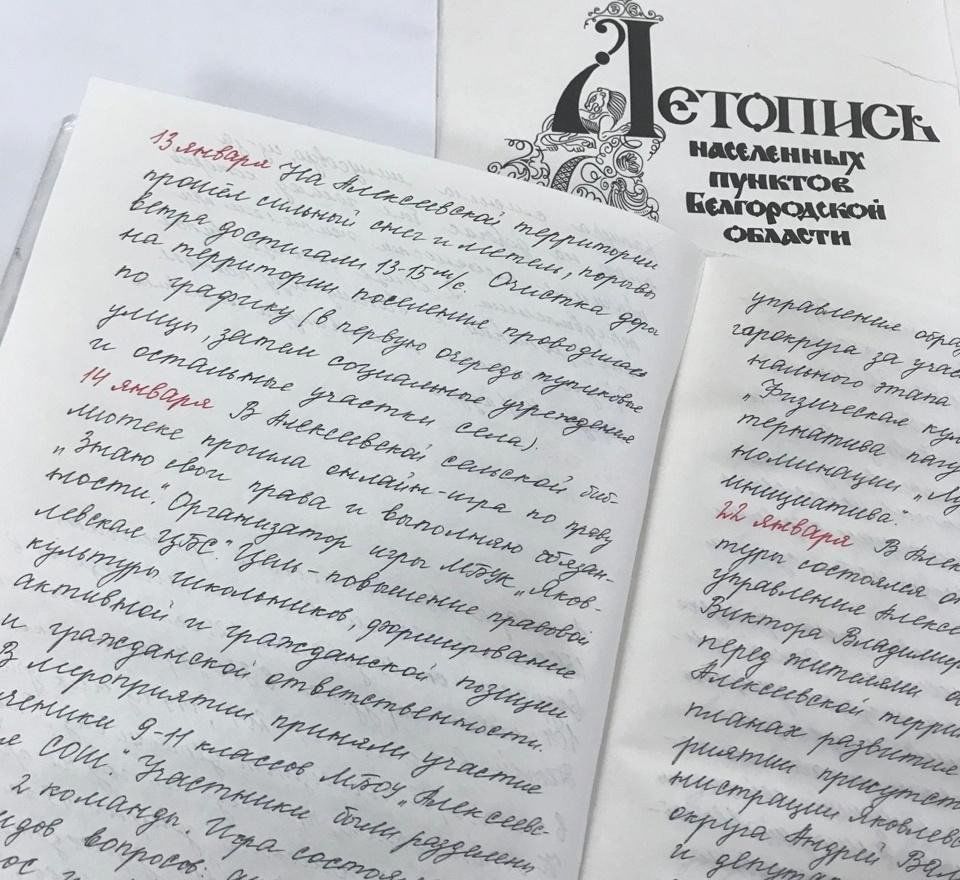 Летопись
населенных
пунктов
Белгородской
области
13 января На Алексеевской территории
прошёл сильный снег и метель, порывы
ветра достигали 13-15 м/с. Очистка дорог
на территории поселение проводилась
по графику (в первую очередь тупиковые
улицы, затем социальные учреждения
и остальные участки села).
14 января В Алексеевской сельской биб-
лиотеке прошла онлайн-игра по праву
„Знаю свои права и выполняю обязан-
ности." Организатор игры МБУК „Яков-
левская ЦБС." Цель - повышение правовой
культуры школьников, формирование
активной и гражданской позиции
и гражданской ответственности.
В мероприятии приняли участие
ученики 9-11 классов МБОУ „Алексеевс-
я СОШ." Участники были разделены
2 команды. Игра состоял
идов вопросов:
управление обра
гарокруга за учас
нального этапа
„Физическая кул
тернатива пагу
номинации „Лу
инициатива".
22 января В Алек
туры состоялся о
управление Алексе
Виктора Владимир
перед жителями
Алексеевской терри
планах развития
риятии присутст
нистрации Яковлевс
округа Андрей Вал
и депута